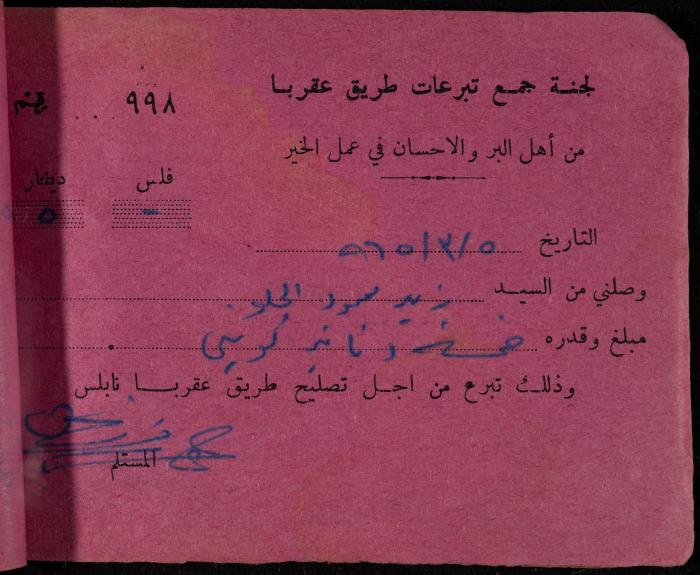 لجنة جمع تبرعات طريق عقربا
رقم ٩٩٨
من أهل البر والاحسان في عمل الخير
فلس دينار
- ٥
التاريخ ٩٦٥/٣/٥
وصلني من السيد زيد محمود
مبلغ وقدره خمسة دنانير كويتي
وذلك تبرع من اجل تصليح طريق عقربا نابلس
المستلم